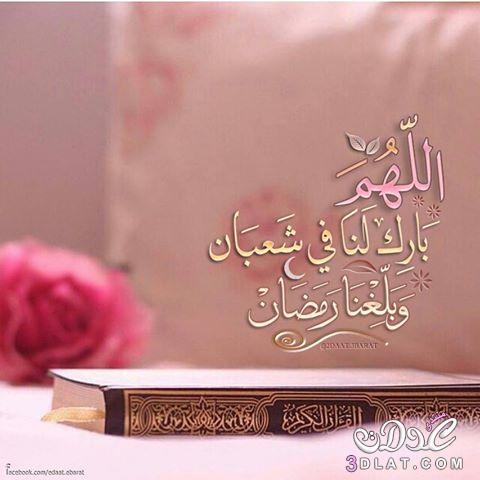 اللَّهُمَّ
بَارِك لَنَا فِي شَعبَان
وَبَلِّغْنَا رَمَضَانْ
@2DAAT.3BARAT
القرآن الكريم
منتدى عدلات
3DLAT.COM
facebook.com/edaat.ebarat